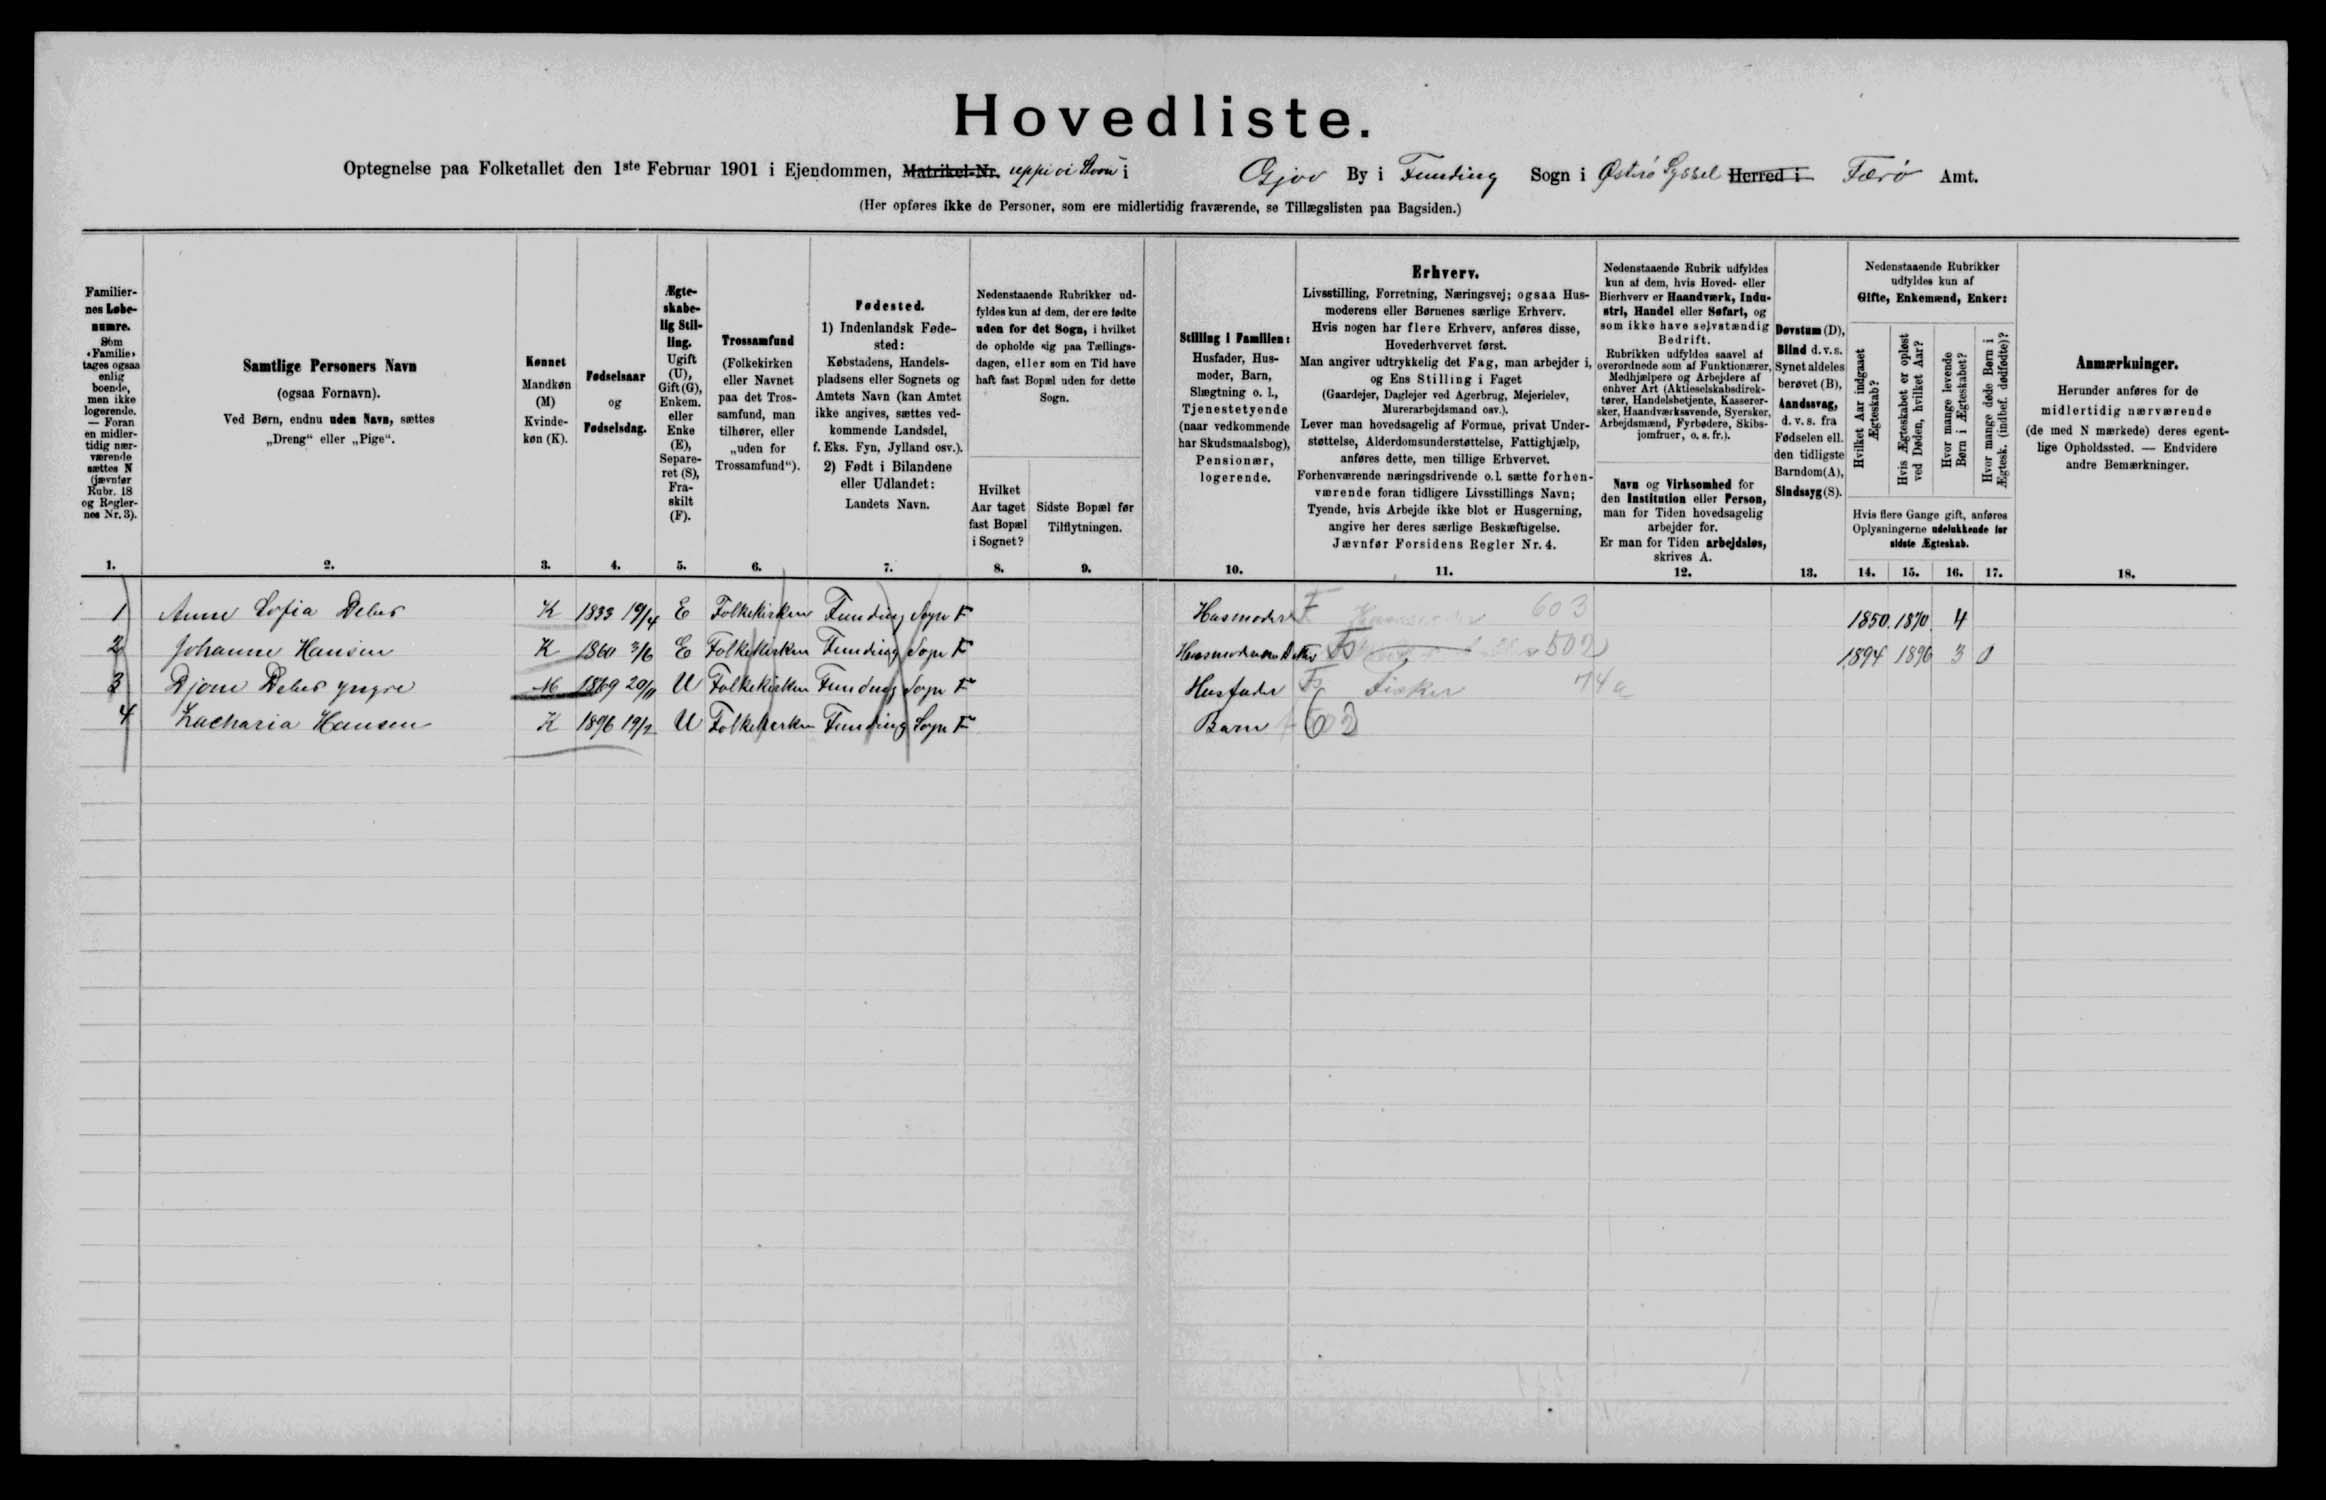 Hovedliste.
Optegnelse paa Folketallet den 1ste Februar 1901 i Ejendommen, Matrikel-Nr. uppi oi i Gjov By i Funding Sogn i Østrø Syssel Herred i Færø Amt.
(Her opføres ikke de Personer, som ere midlertidig fraværende, se Tillægslisten paa Bagsiden.)
Familier-
nes Løbe-
numre.
Som
«Familie»
tages ogsaa
enlig
boende,
men ikke
logerende.
— Foran
en midler-
tidig nær-
værende
sættes N
(jævnfør
Rubr. 18
og Regler-
nes Nr. 3).
1.
Samtlige Personers Navn
(ogsaa Fornavn).
Ved Børn, endnu uden Navn, sættes
„Dreng“ eller „Pige“.
2.
Kønnet
Mandkøn
(M)
Kvinde-
køn (K).
3.
Fødselsaar
og
Fødselsdag.
4.
Ægte-
skabe-
lig Stil-
ling.
Ugift
(U),
Gift (G),
Enkem.
eller
Enke
(E),
Separe-
ret (S),
Fra-
skilt
(F).
5.
Trossamfund
(Folkekirken
eller Navnet
paa det Tros-
samfund, man
tilhører, eller
„uden for
Trossamfund“).
6.
Fødested.
1) Indenlandsk Føde-
sted:
Købstadens, Handels-
pladsens eller Sognets og
Amtets Navn (kan Amtet
ikke angives, sættes ved-
kommende Landsdel,
f. Eks. Fyn, Jylland osv.).
2) Født i Bilandene
eller Udlandet:
Landets Navn.
7.
Nedenstaaende Rubrikker ud-
fyldes kun af dem, der ere fødte
uden for det Sogn, i hvilket
de opholde sig paa Tællings-
dagen, eller som en Tid have
haft fast Bopæl uden for dette
Sogn.
Hvilket
Aar taget
fast Bopæl
i Sognet?
8.
Sidste Bopæl før
Tilflytningen.
9.
Stilling i Familien:
Husfader, Hus-
moder, Barn,
Slægtning o. l.,
Tjenestetyende
(naar vedkommende
har Skudsmaalsbog),
Pensionær,
logerende.
10.
Erhverv.
Livsstilling, Forretning, Næringsvej; ogsaa Hus-
moderens eller Børnenes særlige Erhverv.
Hvis nogen har flere Erhverv, anføres disse,
Hovederhvervet først.
Man angiver udtrykkelig det Fag, man arbejder i,
og Ens Stilling i Faget
(Gaardejer, Daglejer ved Agerbrug, Mejerielev,
Murerarbejdsmand osv.).
Lever man hovedsagelig af Formue, privat Under-
støttelse, Alderdomsunderstøttelse, Fattighjælp,
anføres dette, men tillige Erhvervet.
Forhenværende næringsdrivende o. l. sætte forhen-
værende foran tidligere Livsstillings Navn;
Tyende, hvis Arbejde ikke blot er Husgerning,
angive her deres særlige Beskæftigelse.
Jævnfør Forsidens Regler Nr. 4.
11.
Nedenstaaende Rubrik udfyldes
kun af dem, hvis Hoved- eller
Bierhverv er Haandværk, Indu-
stri, Handel eller Søfart, og
som ikke have selvstændig
Bedrift.
Rubrikken udfyldes saavel af
overordnede som af Funktionærer,
Medhjælpere og Arbejdere af
enhver Art (Aktieselskabsdirek-
tører, Handelsbetjente, Kasserer-
sker, Haandværkssvende, Syersker,
Arbejdsmænd, Fyrbødere, Skibs-
jomfruer, o. s. fr.).
Navn og Virksomhed for
den Institution eller Person,
man for Tiden hovedsagelig
arbejder for.
Er man for Tiden arbejdsløs,
skrives A.
12.
Døvstum (D),
Blind d. v. s.
Synet aldeles
berøvet (B),
Aandssvag,
d. v. s. fra
Fødselen ell.
den tidligste
Barndom (A),
Sindssyg (S).
13.
Nedenstaaende Rubrikker
udfyldes kun af
Gifte, Enkemænd, Enker:
Hvilket Aar indgaaet
Ægteskab?
Hvis Ægteskabet er opløst
ved Døden, hvilket Aar?
Hvor mange levende
Børn i Ægteskabet?
Hvor mange døde Børn i
Ægtesk. (indbef. dødfødte)?
Hvis flere Gange gift, anføres
Oplysningerne udelukkende for
sidste Ægteskab.
14. 15. 16. 17.
Anmærkninger.
Herunder anføres for de
midlertidig nærværende
(de med N mærkede) deres egent-
lige Opholdssted. — Endvidere
andre Bemærkninger.
18.
1 Anne Sofia Debes K 1833 19/4 E Folkekirken Funding Sogn F Husmoder F 603 1850 1870 4
2 Johanne Hansen K 1860 3/6 E Folkekirken Funding Sogn F Husmoderens 502 1894 1896 3 0
3 Djone Debes yngre M 1869 20/11 U Folkekirken Funding Sogn F Husfader Fisker 74a
4 Zacharia Hansen K 1896 19/2 U Folkekirken Funding Sogn F Barn 502